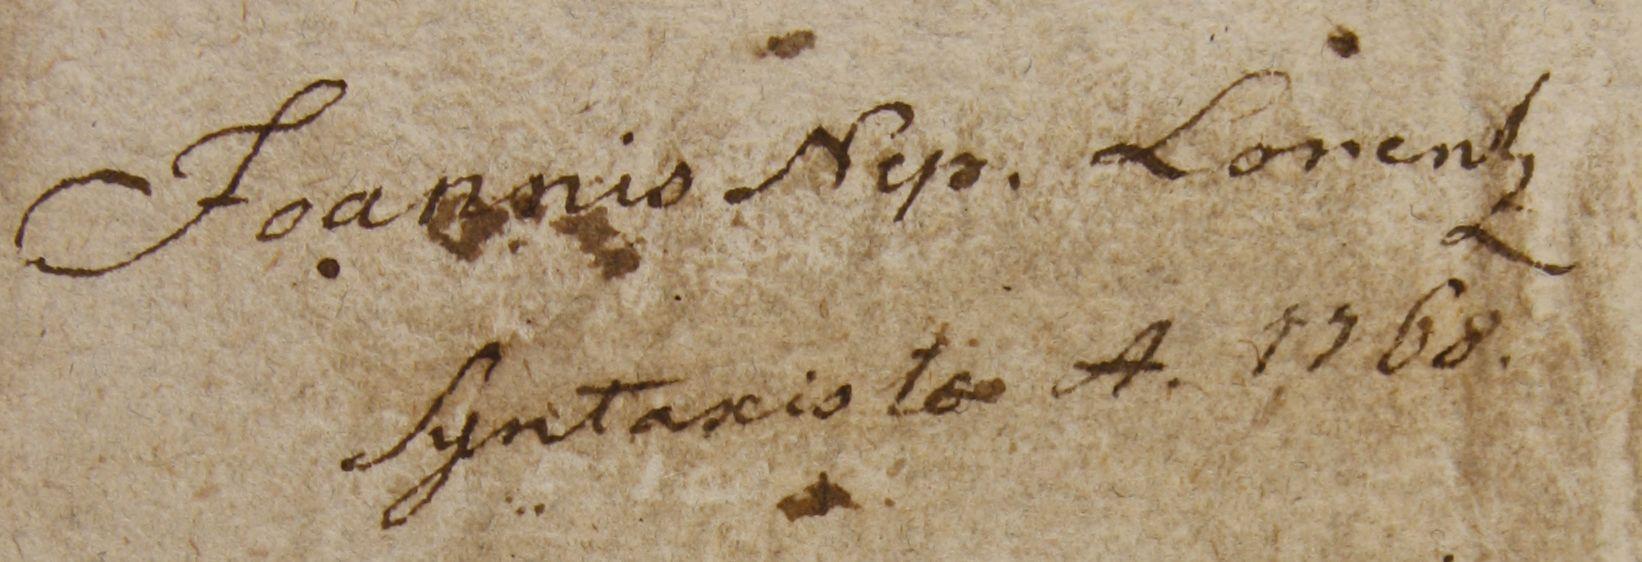 Joannis Nep. Lorentz
Syntaxistae A. 1768.